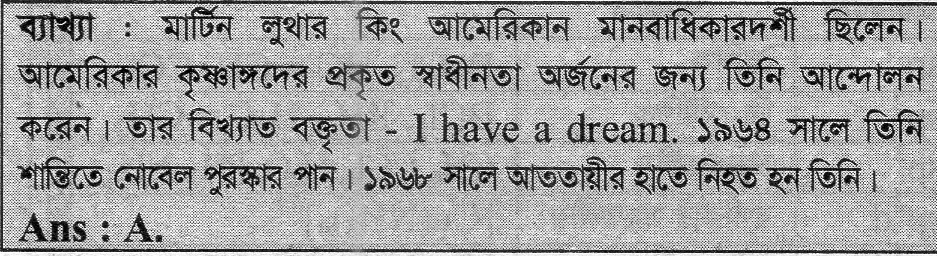 ব্যাখ্যা : মার্টিন লুথার কিং আমেরিকান মানবাধিকারদর্শী ছিলেন।
আমেরিকার কৃষ্ণাঙ্গদের প্রকৃত স্বাধীনতা অর্জনের জন্য তিনি আন্দোলন
করেন। তার বিখ্যাত বক্তৃতা - I have a dream. ১৯৬৪ সালে তিনি
শান্তিতে নোবেল পুরস্কার পান। ১৯৬৮ সালে আততায়ীর হাতে নিহত হন তিনি।
Ans : A.